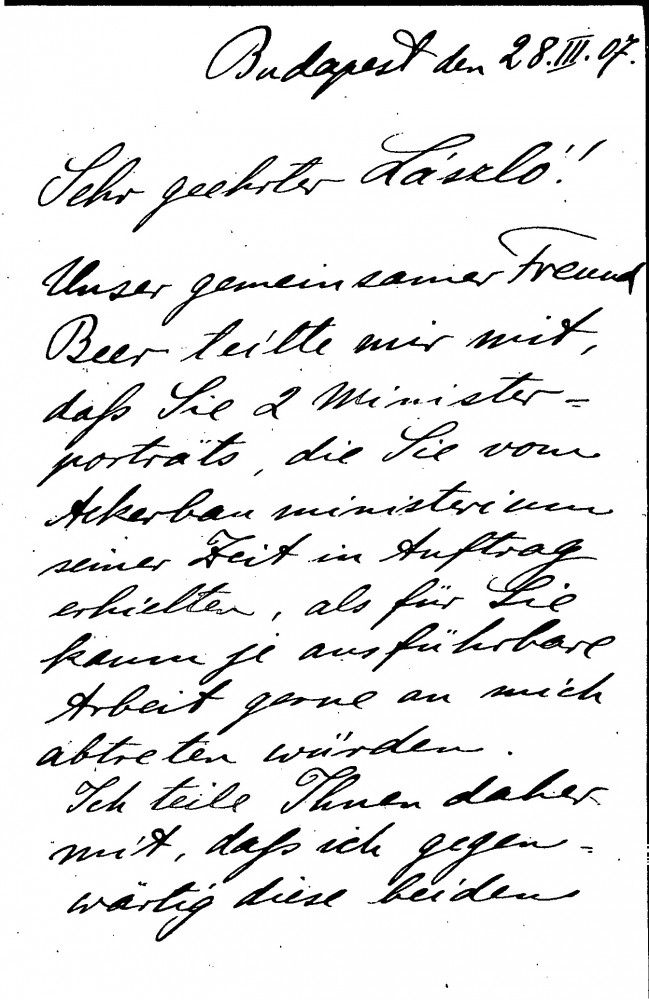 Budapest den 28.III.07.
Sehr geehrter László!
Unser gemeinsamer Freund
Beer teilte mir mit,
daß Sie 2 Minister=
porträts, die Sie vom
Ackerbauministerium
seiner Zeit in Auftrag
erhielten, als für Sie
kaum je ausführbare
Arbeit gerne an mich
abtreten würden.
Ich teile Ihnen daher
mit, daß ich gegen=
wärtig diese beiden